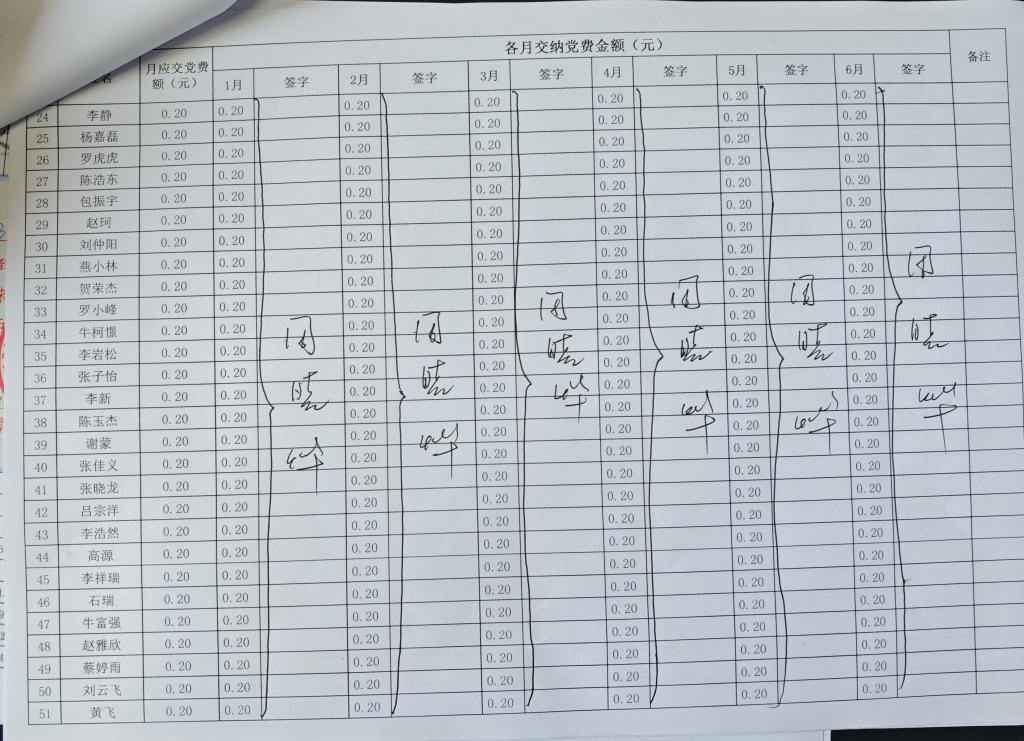 各月交纳党费金额（元）
名 月应交党费额（元） 1月 签字 2月 签字 3月 签字 4月 签字 5月 签字 6月 签字 备注
24 李静 0.20 0.20 0.20 0.20 0.20 0.20 0.20
25 杨嘉磊 0.20 0.20 0.20 0.20 0.20 0.20 0.20
26 罗虎虎 0.20 0.20 0.20 0.20 0.20 0.20 0.20
27 陈浩东 0.20 0.20 0.20 0.20 0.20 0.20 0.20
28 包振宇 0.20 0.20 0.20 0.20 0.20 0.20 0.20
29 赵珂 0.20 0.20 0.20 0.20 0.20 0.20 0.20
30 刘仲阳 0.20 0.20 0.20 0.20 0.20 0.20 0.20
31 燕小林 0.20 0.20 0.20 0.20 0.20 0.20 0.20
32 贺荣杰 0.20 0.20 0.20 0.20 0.20 0.20 0.20
33 罗小峰 0.20 0.20 0.20 0.20 0.20 0.20 0.20
34 牛柯憬 0.20 0.20 0.20 0.20 0.20 0.20 0.20
35 李岩松 0.20 0.20 0.20 0.20 0.20 0.20 0.20
36 张子怡 0.20 0.20 0.20 0.20 0.20 0.20 0.20
37 李新 0.20 0.20 0.20 0.20 0.20 0.20 0.20
38 陈玉杰 0.20 0.20 0.20 0.20 0.20 0.20 0.20
39 谢蒙 0.20 0.20 0.20 0.20 0.20 0.20 0.20
40 张佳义 0.20 0.20 0.20 0.20 0.20 0.20 0.20
41 张晓龙 0.20 0.20 0.20 0.20 0.20 0.20 0.20
42 吕宗洋 0.20 0.20 0.20 0.20 0.20 0.20 0.20
43 李浩然 0.20 0.20 0.20 0.20 0.20 0.20 0.20
44 高源 0.20 0.20 0.20 0.20 0.20 0.20 0.20
45 李祥瑞 0.20 0.20 0.20 0.20 0.20 0.20 0.20
46 石瑞 0.20 0.20 0.20 0.20 0.20 0.20 0.20
47 牛富强 0.20 0.20 0.20 0.20 0.20 0.20 0.20
48 赵雅欣 0.20 0.20 0.20 0.20 0.20 0.20 0.20
49 蔡婷雨 0.20 0.20 0.20 0.20 0.20 0.20 0.20
50 刘云飞 0.20 0.20 0.20 0.20 0.20 0.20 0.20
51 黄飞 0.20 0.20 0.20 0.20 0.20 0.20 0.20